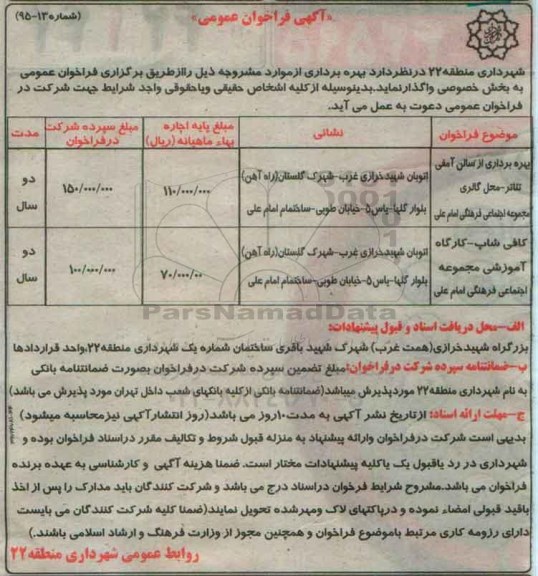 «آگهی فراخوان عمومی»
(شماره ۱۳-۹۵)
شهرداری منطقه۲۲ درنظردارد بهره برداری ازموارد مشروحه ذیل راازطریق برگزاری فراخوان عمومی
به بخش خصوصی واگذارنماید.بدینوسیله ازکلیه اشخاص حقیقی ویاحقوقی واجد شرایط جهت شرکت در
فراخوان عمومی دعوت به عمل می آید.
موضوع فراخوان
نشانی
مبلغ پایه اجاره بهاء ماهیانه (ریال)
مبلغ سپرده شرکت درفراخوان
مدت
بهره برداری از سالن آمفی
تئاتر-محل گالری
مجموعه اجتماعی فرهنگی امام علی
اتوبان شهیدخرازی غرب-شهرک گلستان(راه آهن)
بلوار گلها-یاس۵-خیابان طوبی-ساختمام امام علی
۱۱۰/۰۰۰/۰۰۰
۱۵۰/۰۰۰/۰۰۰
دو
سال
کافی شاپ-کارگاه
آموزشی مجموعه
اجتماعی فرهنگی امام علی
اتوبان شهیدخرازی غرب-شهرک گلستان(راه آهن)
بلوار گلها-یاس۵-خیابان طوبی-ساختمام امام علی
۷۰/۰۰۰/۰۰
۱۰۰/۰۰۰/۰۰۰
دو
سال
ParsNamadData
الف-محل دریافت اسناد و قبول پیشنهادات:
بزرگراه شهیدخرازی(همت غرب) شهرک شهید باقری ساختمان شماره یک شهرداری منطقه۲۲،واحد قراردادها
ب-ضمانتنامه سپرده شرکت درفراخوان:مبلغ تضمین سپرده شرکت درفراخوان بصورت ضمانتنامه بانکی
به نام شهرداری منطقه۲۲ موردپذیرش میباشد(ضمانتنامه بانکی ازکلیه بانکهای شعب داخل تهران مورد پذیرش می باشد)
ج-مهلت ارائه اسناد: ازتاریخ نشر آگهی به مدت۱۰روز می باشد(روز انتشارآگهی نیزمحاسبه میشود)
بدیهی است شرکت درفراخوان وارائه پیشنهاد به منزله قبول شروط و تکالیف مقرر دراسناد فراخوان بوده و
شهرداری در رد یاقبول یک یاکلیه پیشنهادات مختار است. ضمنا هزینه آگهی و کارشناسی به عهده برنده
فراخوان می باشد.مشروح شرایط فرخوان دراسناد درج می باشد و شرکت کنندگان باید مدارک را پس از اخذ
باقید قبولی امضاء نموده و درپاکتهای لاک ومهرشده تحویل نمایند(ضمنا کلیه شرکت کنندگان می بایست
دارای رزومه کاری مرتبط باموضوع فراخوان و همچنین مجوز از وزارت فرهنگ و ارشاد اسلامی باشند.)
روابط عمومی شهرداری منطقه۲۲